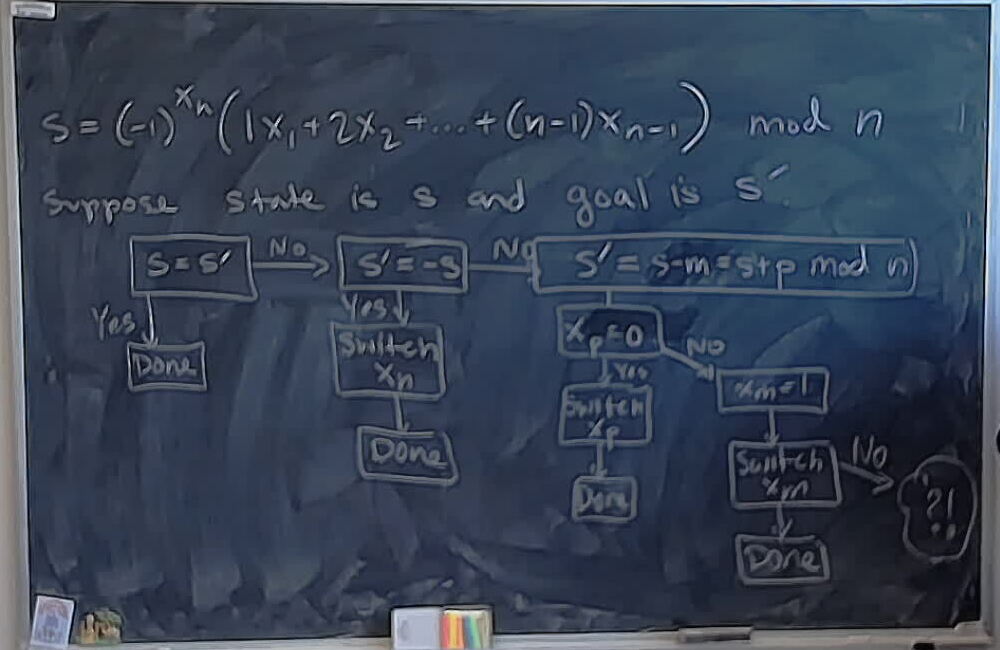 S = (-1)^{x_n} (1x_1 + 2x_2 + ... + (n-1)x_{n-1}) mod n
Suppose state is s and goal is s'.
S = S' No S' = -S No S' = s-m = s+p mod n
Yes Yes x_p = 0 No
Done Switch Yes x_m = 1
x_n Switch
x_p Switch No
Done x_m ?!
Done
Done